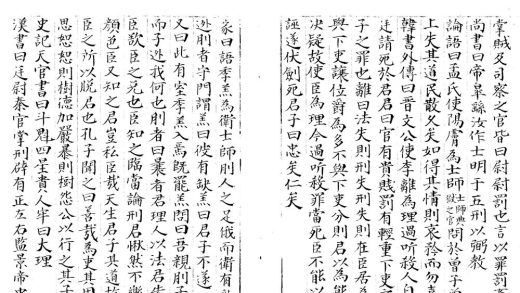 掌賊及司察之官皆曰尉尉罰也言以罪罰
尚書曰帝皋繇汝作士明于五刑以弼教
論語曰孟氏使陽膚為士師士師典獄之官問於曾子
上失其道民散久矣如得其情則哀矜而勿
韓書外傳曰晉文公使李離為理過聽殺人自
廷請死於君君曰官有貴賤罰有輕重下吏
子之罪也離曰法失則刑失刑失則在臣居
與下吏讓位爵為多不與下吏分則君以為能
決疑故使臣為理今過聽殺罪當死臣不能以
誣遂伏劍死君子曰忠矣仁矣
家曰語季羔為衛士師刖人之足俄而衛有
刖者守門謂羔曰彼有缺羔曰君子不遂
又曰此有室季羔入焉既罷羔問曰吾親刖子
而子逃我何也刖者曰曩者君理人以法君
臣欲臣之免也臣知之臨當論刑君愀然不
顏色臣又知之君豈私臣哉天生君子其道故
臣之所以脫君也孔子聞之曰善哉為吏其
思恕恕則樹德加嚴暴則樹怨公以行之其子
史記天官書曰斗魁四星貴人牢曰大理
漢書曰廷尉秦官掌刑辟有正左右監景帝